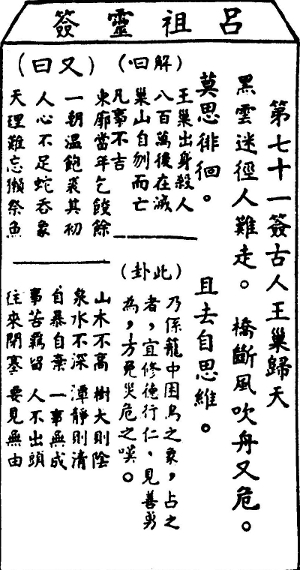 呂祖靈簽
第七十一簽古人王巢歸天
黑雲迷徑人難走。 橋斷風吹舟又危。
莫思徘徊。 且去自思維。
(解曰)
王巢出身殺人
八百萬後在滅
巢山自刎而亡
凡事不吉
(又曰)
東廓當年乞餕餘
一朝溫飽喪其初
人心不足蛇吞象
天理難忘獺祭魚
(此卦)
乃係籠中困鳥之象,占之
者,宜修德行仁、見善勇
為,方免災危之嘆。
山木不高 樹大則陰
泉水不深 潭靜則清
自暴自棄 一事無成
事苦羈留 人不出頭
往來閉塞 要見無由